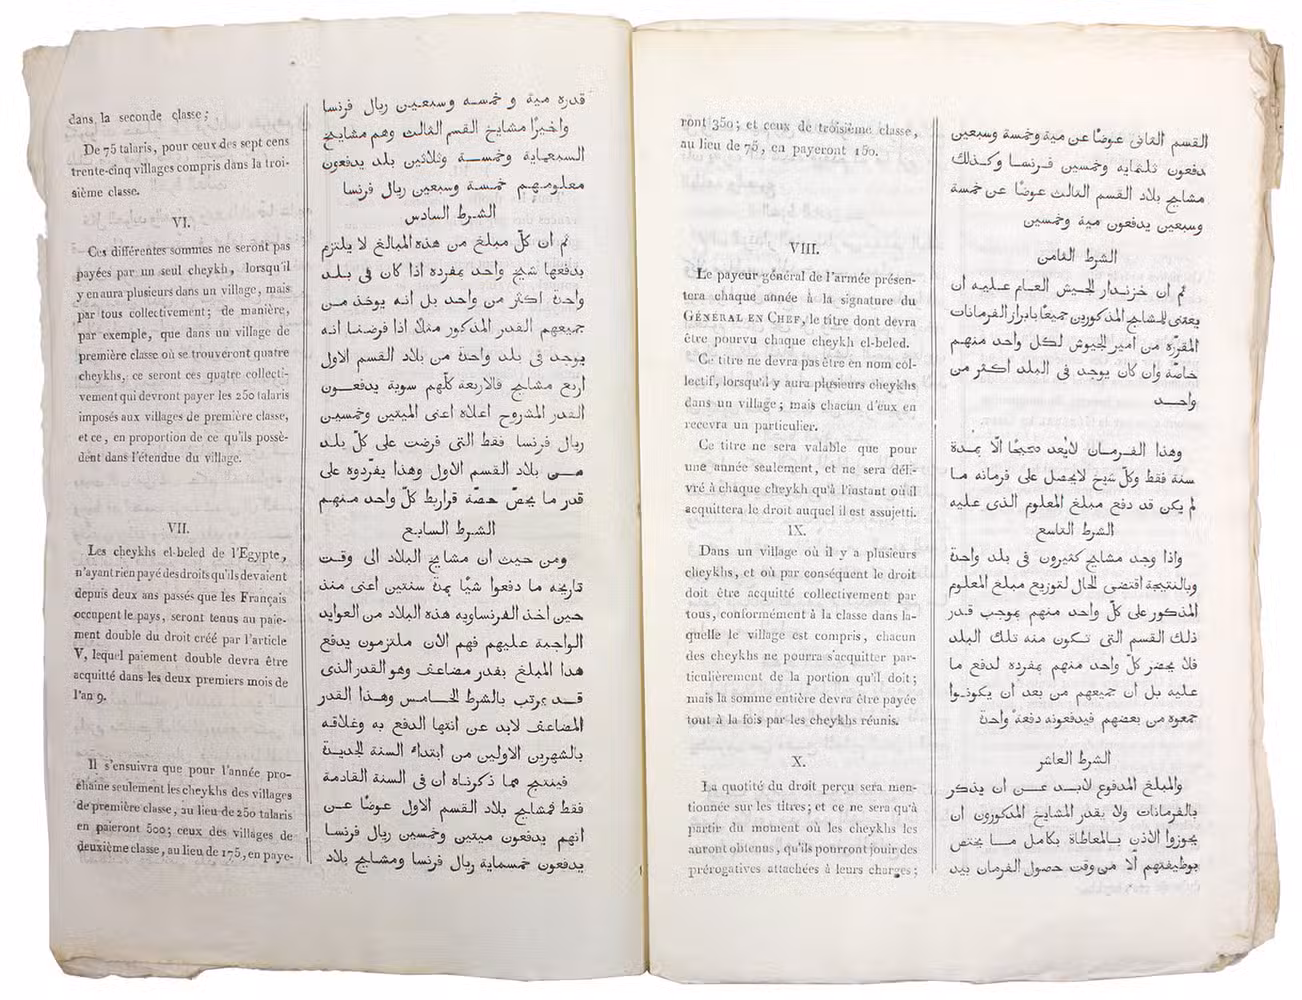 dans la seconde classe;
De 75 talaris, pour ceux des sept cens
trente-cinq villages compris dans la troi-
sième classe.
VI.
Ces différentes sommes ne seront pas
payées par un seul cheykh, lorsqu'il
y en aura plusieurs dans un village, mais
par tous collectivement; de manière,
par exemple, que dans un village de
première classe où se trouveront quatre
cheykhs, ce seront ces quatre collecti-
vement qui devront payer les 250 talaris
imposés aux villages de première classe,
et ce, en proportion de ce qu'ils possè-
dent dans l'étendue du village.
VII.
Les cheykhs el-beled de l'Egypte,
n'ayant rien payé des droits qu'ils devaient
depuis deux ans passés que les Français
occupent le pays, seront tenus au paie-
ment double du droit créé par l'article
V, lequel paiement double devra être
acquitté dans les deux premiers mois de
l'an 9.
Il s'ensuivra que pour l'année pro-
chaine seulement les cheykhs des villages
de première classe, au lieu de 250 talaris
en paieront 500; ceux des villages de
deuxième classe, au lieu de 175, en paye-
قدره مية و خمسه وسبعين ريال فرنسا
واخيرًا مشايخ القسم الثالث وهم مشايخ
السبعماية وخمسة وثلاثين بلد يدفعون
معلومهم خمسة وسبعين ريال فرنسا
الشرط السادس
ثم ان كلّ مبلغ من هذه المبالغ لا يلتزم
بدفعها شيخ واحد بمفرده اذا كان في بلد
واحدة اكثر من واحد بل انه يوخذ من
جميعهم القدر المذكور مثلا اذا فرضنا انه
يوجد في بلد واحدة من بلاد القسم الاول
اربع مشايخ فالاربعة كلّهم سوية يدفعون
القدر المشروح اعلاه اعني الميتين وخمسين
ريال فرنسا فقط التي فرضت على كلّ بلد
من بلاد القسم الاول وهذا يفرّدوه على
قدر ما يخصّ حصّة قراريط كلّ واحد منهم
الشرط السابع
ومن حيث ان مشايخ البلاد الى وقت
تاريخه ما دفعوا شيًا بمدة سنتين اعني منذ
حين اخذ الفرنساويه هذه البلاد من العوايد
الواجبة عليهم فهم الان ملتزمون يدفع
هذا المبلغ بقدر مضاعف وهو القدر الذي
قد يرتب بالشرط الخامس وهذا القدر
المضاعف لابد عن انتها الدفع به وغلاقه
بالشهرين الاولين من ابتداء السنة الجديدة
فينتج مما ذكرناه ان في السنة القادمة
فقط فمشايخ بلاد القسم الاول عوضًا عن
انهم يدفعون ميتين وخمسين ريال فرنسا
يدفعون خمسماية ريال فرنسا ومشايخ بلاد
ront 350; et ceux de troisième classe,
au lieu de 75, en payeront 150.
VIII.
Le payeur général de l'armée présen-
tera chaque année à la signature du
GÉNÉRAL EN CHEF, le titre dont devra
être pourvu chaque cheykh el-beled.
Ce titre ne devra pas être en nom col-
lectif, lorsqu'il y aura plusieurs cheykhs
dans un village; mais chacun d'eux en
recevra un particulier.
Ce titre ne sera valable que pour
une année seulement, et ne sera déli-
vré à chaque cheykh qu'à l'instant où il
acquittera le droit auquel il est assujetti.
IX.
Dans un village où il y a plusieurs
cheykhs, et où par conséquent le droit
doit être acquitté collectivement par
tous, conformément à la classe dans la-
quelle le village est compris, chacun
des cheykhs ne pourra s'acquitter par-
ticulièrement de la portion qu'il doit;
mais la somme entière devra être payée
tout à la fois par les cheykhs réunis.
X.
La quotité du droit perçu sera men-
tionnée sur les titres; et ce ne sera qu'à
partir du moment où les cheykhs les
auront obtenus, qu'ils pourront jouir des
prérogatives attachées à leurs charges;
القسم الثاني عوضًا عن مية وخمسة وسبعين
يدفعون ثلثمايه وخمسين فرنسا وكذلك
مشايخ بلاد القسم الثالث عوضًا عن خمسة
وسبعين يدفعون مية وخمسين
الشرط الثامن
ثم ان خزندار الجيش العام عليه ان
يعتني للمشايخ المذكورين جميعًا بابراز الفرمانات
المقرّره من امير الجيوش لكل واحد منهم
خاصّة وان كان يوجد في البلد اكثر من
واحد
وهذا الفرمان لايُعد صحيحًا الّا بمدة
سنة فقط وكلّ شيخ لايحصل على فرمانه ما
لم يكن قد دفع مبلغ المعلوم الذي عليه
الشرط التاسع
واذا وجد مشايخ كثيرون في بلد واحدة
وبالنتيجة اقتضى الحال لتوزيع مبلغ المعلوم
المذكور على كلّ واحد منهم بموجب قدر
ذلك القسم التي تكون منه تلك البلد
فلا يحضر كلّ واحد منهم بمفرده لدفع ما
عليه بل ان جميعهم من بعد ان يكونوا
جمعوه من بعضهم فيدفعونه دفعةً واحدة
الشرط العاشر
والمبلغ المدفوع لابد عن ان يذكر
بالفرمانات ولا يقدر المشايخ المذكورون ان
يجوزوا الاذن بالمعاطاة بكامل ما يختص
بوظيفتهم الا من وقت حصول الفرمان بيد